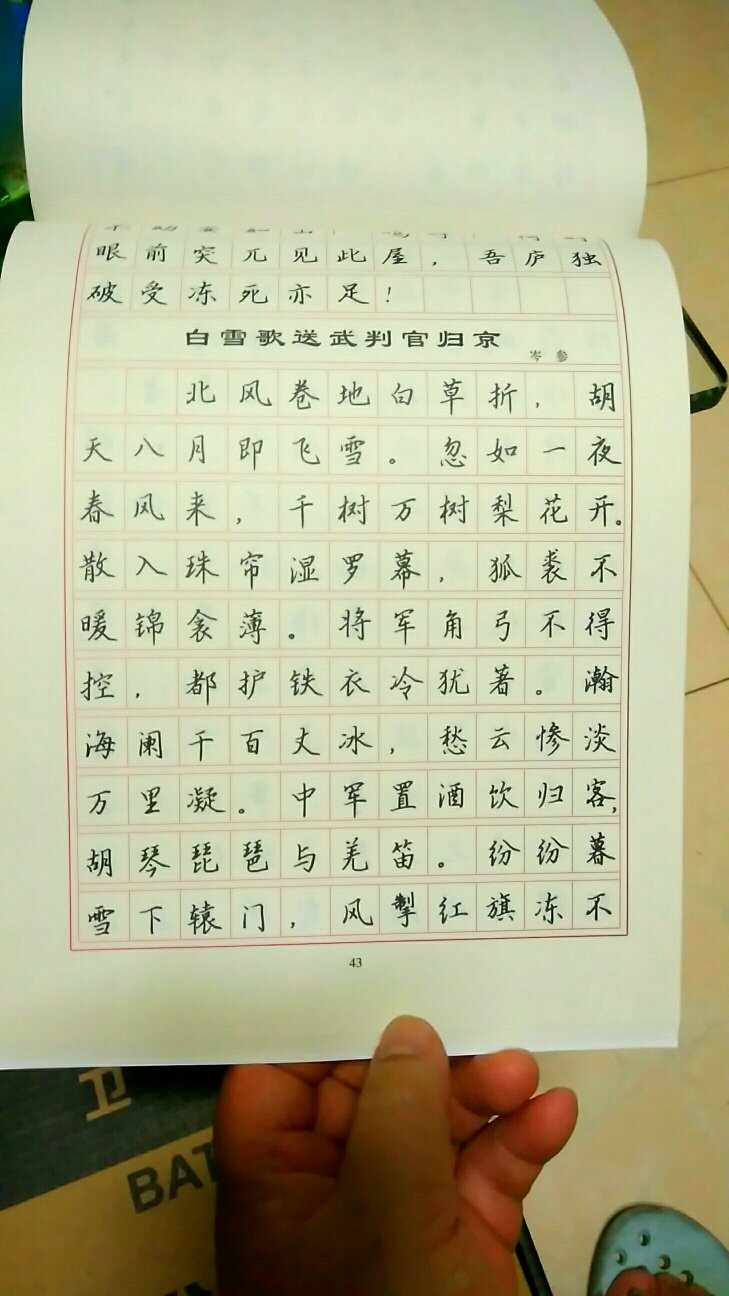 眼前突兀见此屋，吾庐独
破受冻死亦足！
白雪歌送武判官归京
岑参
北风卷地白草折，胡
天八月即飞雪。忽如一夜
春风来，千树万树梨花开。
散入珠帘湿罗幕，狐裘不
暖锦衾薄。将军角弓不得
控，都护铁衣冷犹著。瀚
海阑干百丈冰，愁云惨淡
万里凝。中军置酒饮归客，
胡琴琵琶与羌笛。纷纷暮
雪下辕门，风掣红旗冻不
43
卫
BAT